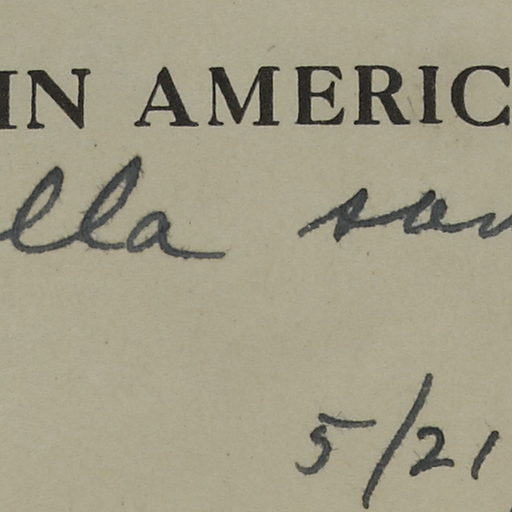 IN AMERIC
lla sav
5/21